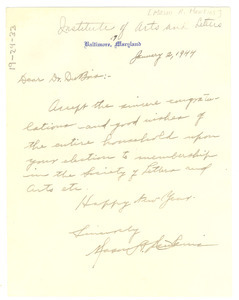 Institute of Arts and Letters
Baltimore, Maryland
January 2, 1944
Dear Dr. DuBois:-
Accept the sincere congratu-
lations and good wishes of
the entire household upon
your election to membership
in the Society of Letters and
Arts etc.
Happy New Year.
Sincerely